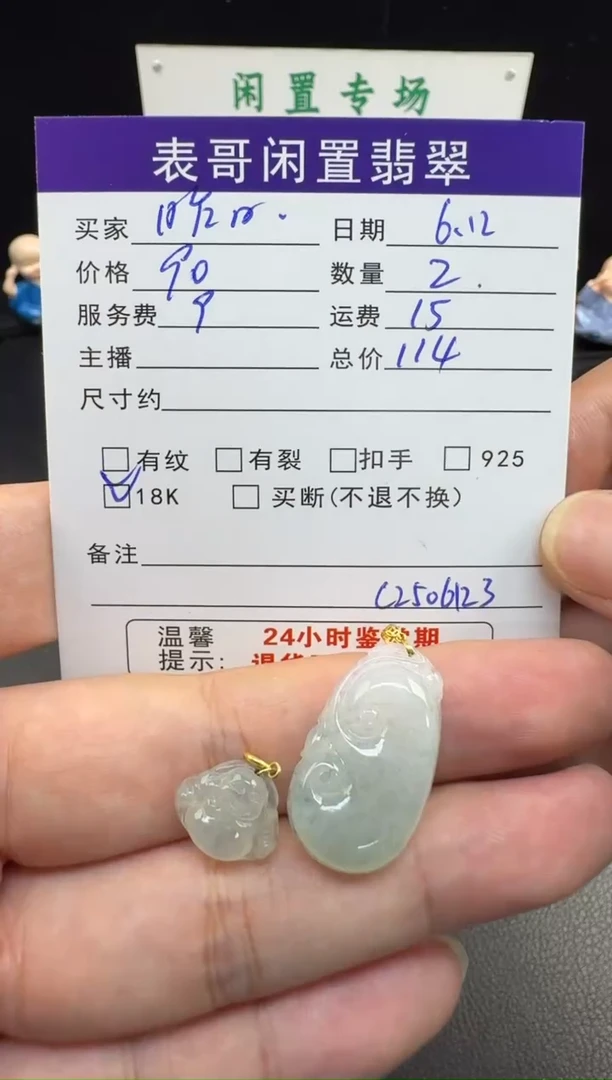 闲置专场
表哥闲置翡翠
买家 日期 6.12
价格 90 数量 2.
服务费 9 运费 15
主播 总价 114
尺寸约
有纹 有裂 扣手 925
18K 买断(不退不换)
备注
C2506123
温馨 24小时鉴赏期
提示: